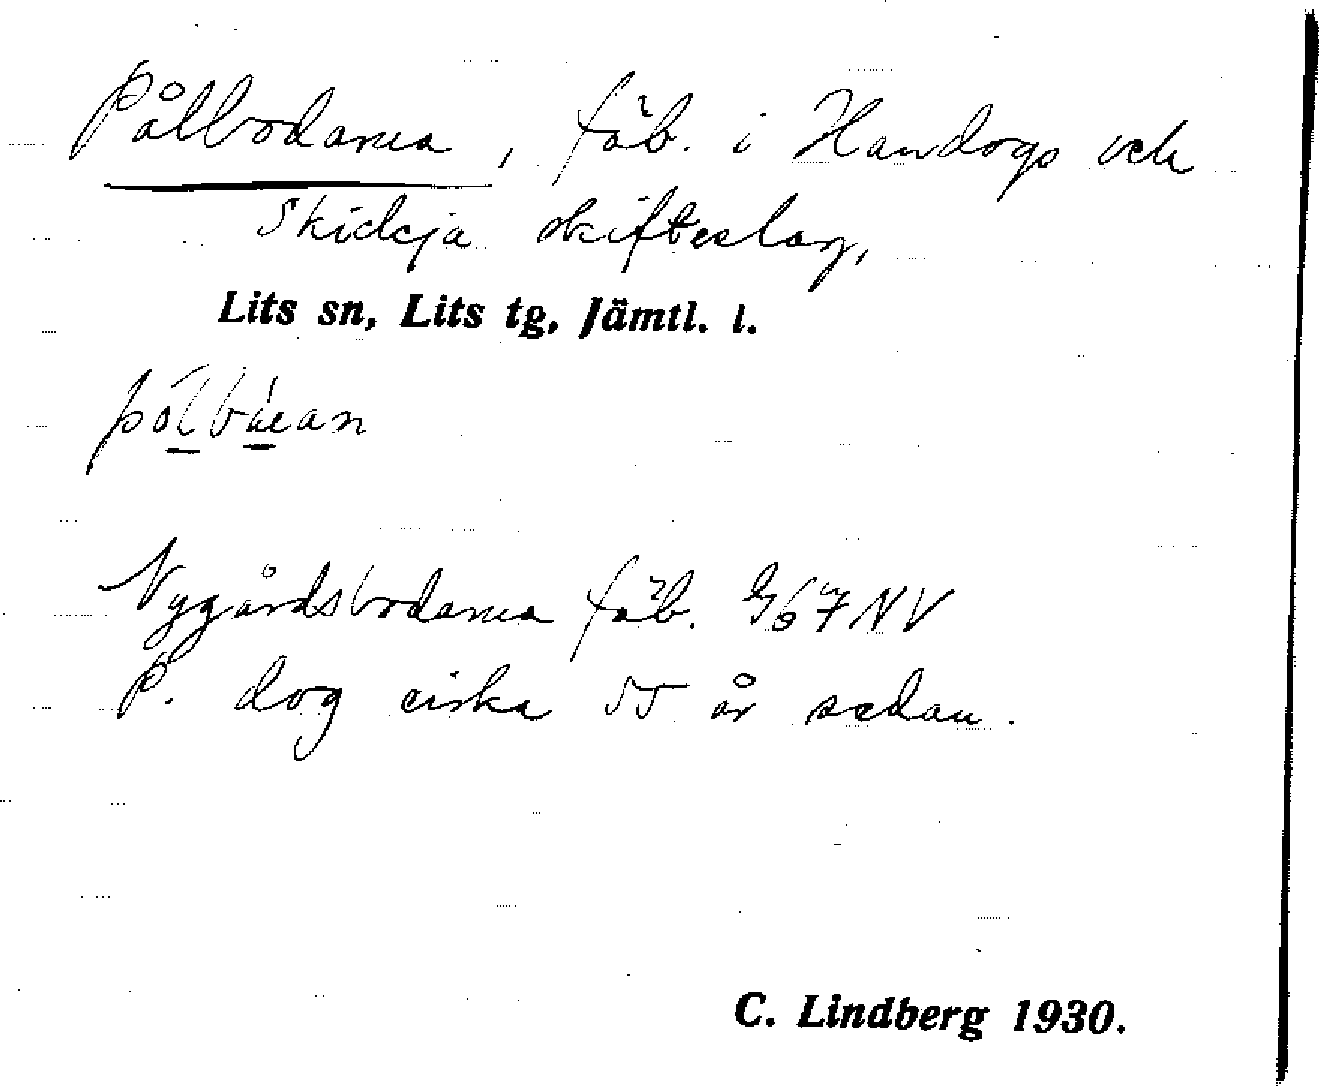 Pålbodarna, fäb. i Handogs och
Skickja skifteslag,
Lits sn, Lits tg, Jämtl. l.
Nygårdsbodarna fäb. G67NV
P. dog cirka 55 år sedan.
C. Lindberg 1930.